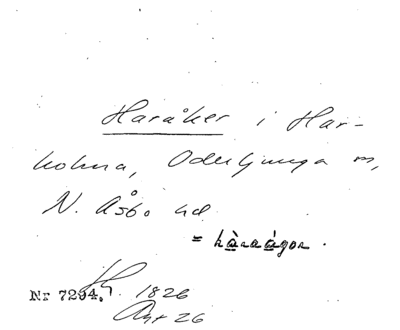 Haråker i Har-
holma, Oderljunga sn,
N. Åsbo hd
= hàraågor.
Nr 7294. 1826
Art 26